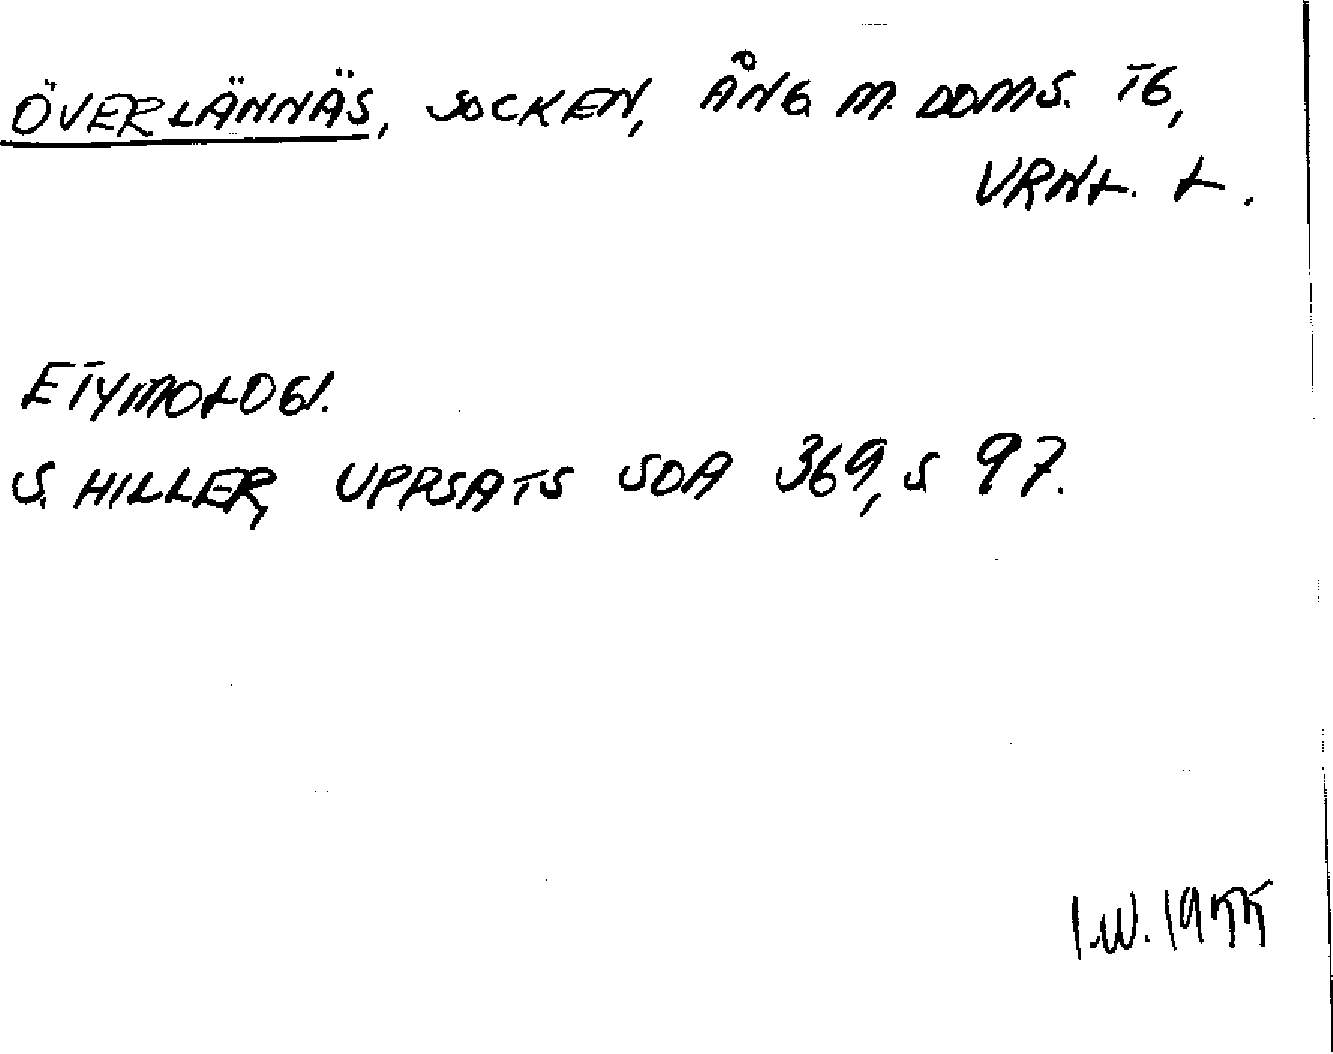 ÖVERLÄNNÄS, SOCKEN, ÅNG. M. DOMS. TG,
VRNL. L.
ETYMOLOGI.
S. HILLER, UPPSATS SOA 369, S 97.
I.W. 1955